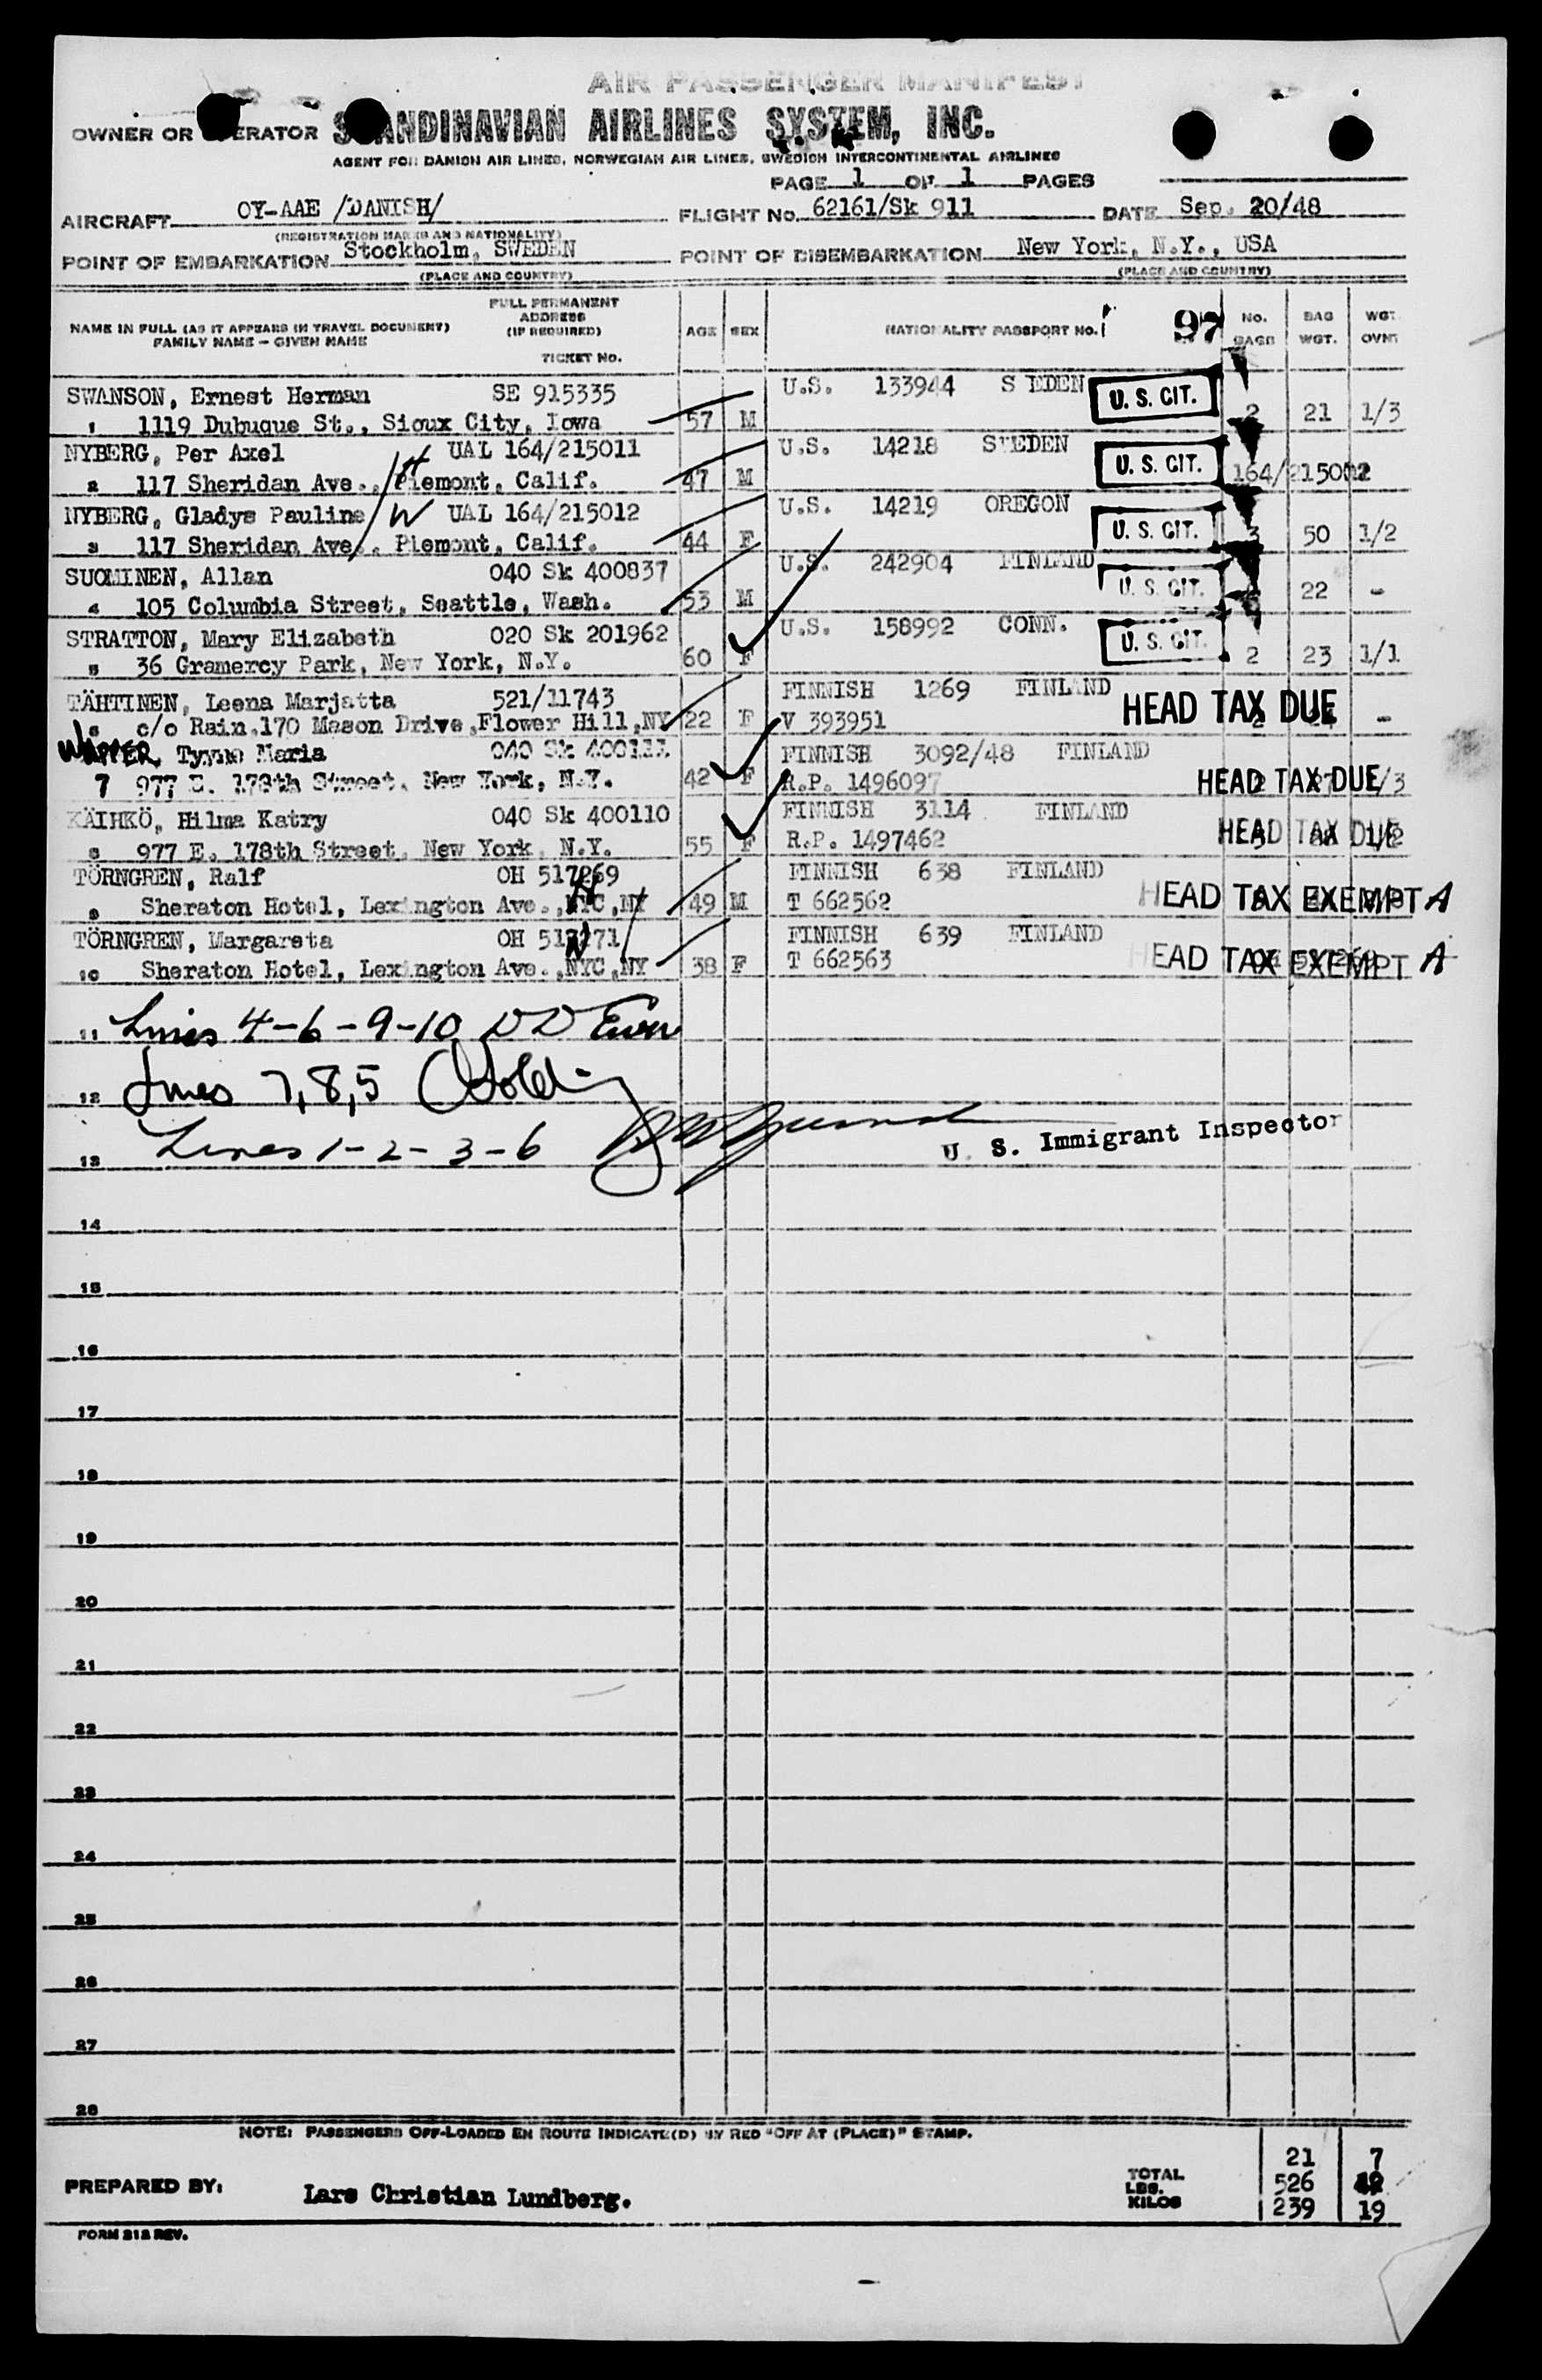 AIR PASSENGER MANIFEST
OWNER OR OPERATOR SCANDINAVIAN AIRLINES SYSTEM, INC.
AGENT FOR DANISH AIR LINES, NORWEGIAN AIR LINES, SWEDISH INTERCONTINENTAL AIRLINES
PAGE 1 OF 1 PAGES
AIRCRAFT OY-AAE /DANISH/ FLIGHT No. 62161/Sk 911 DATE Sep. 20/48
(REGISTRATION MARKS AND NATIONALITY)
POINT OF EMBARKATION Stockholm, SWEDEN POINT OF DISEMBARKATION New York, N.Y., USA
(PLACE AND COUNTRY) (PLACE AND COUNTRY)
NAME IN FULL (AS IT APPEARS IN TRAVEL DOCUMENT) FAMILY NAME - GIVEN NAME FULL PERMANENT ADDRESS (IF REQUIRED) TICKET No. AGE SEX NATIONALITY PASSPORT No. 97 No. BAGS BAG WGT. WGT. OVNT
SWANSON, Ernest Herman SE 915335 U.S. 133944 S EDEN U. S. CIT.
1 1119 Dubuque St., Sioux City, Iowa 57 M 2 21 1/3
NYBERG, Per Axel UAL 164/215011 U.S. 14218 SWEDEN U. S. CIT.
2 117 Sheridan Ave., Piemont, Calif. H 47 M 164/215012
NYBERG, Gladys Pauline W UAL 164/215012 U.S. 14219 OREGON U. S. CIT.
3 117 Sheridan Ave., Piemont, Calif. 44 F 3 50 1/2
SUOMINEN, Allan 040 Sk 400837 U.S. 242904 FINLAND U. S. CIT.
4 105 Columbia Street, Seattle, Wash. 53 M 22 -
STRATTON, Mary Elizabeth 020 Sk 201962 U.S. 158992 CONN. U. S. CIT.
5 36 Gramercy Park, New York, N.Y. 60 F 2 23 1/1
TÄHTINEN, Leena Marjatta 521/11743 FINNISH 1269 FINLAND HEAD TAX DUE
6 c/o Rain,170 Mason Drive,Flower Hill,NY 22 F V 393951 -
Tyyne Maria 040 Sk FINNISH 3092/48 FINLAND
7 977 E. 178th Street, New York, N.Y. 42 F R.P. 1496097 HEAD TAX DUE /3
KÄIHKÖ, Hilma Katry 040 Sk 400110 FINNISH 3114 FINLAND HEAD TAX DUE
8 977 E. 178th Street, New York, N.Y. 55 F R.P. 1497462
TÖRNGREN, Ralf OH 517269 FINNISH 638 FINLAND HEAD TAX EXEMPT A
9 Sheraton Hotel, Lexington Ave.,NYC,NY H 49 M T 662562
TÖRNGREN, Margareta OH 517271 FINNISH 639 FINLAND HEAD TAX EXEMPT A
10 Sheraton Hotel, Lexington Ave.,NYC,NY W 38 F T 662563
11 Lines 4-6-9-10
12 Lines 7,8,5
13 Lines 1-2-3-6
U. S. Immigrant Inspector
14
15
16
17
18
19
20
21
22
23
24
25
26
27
28
NOTE: PASSENGERS OFF-LOADED EN ROUTE INDICATE(D) BY RED "OFF AT (PLACE)" STAMP.
PREPARED BY: Lars Christian Lundberg.
TOTAL 21 7
LBS. 526
KILOS 239 19
FORM 212 REV.